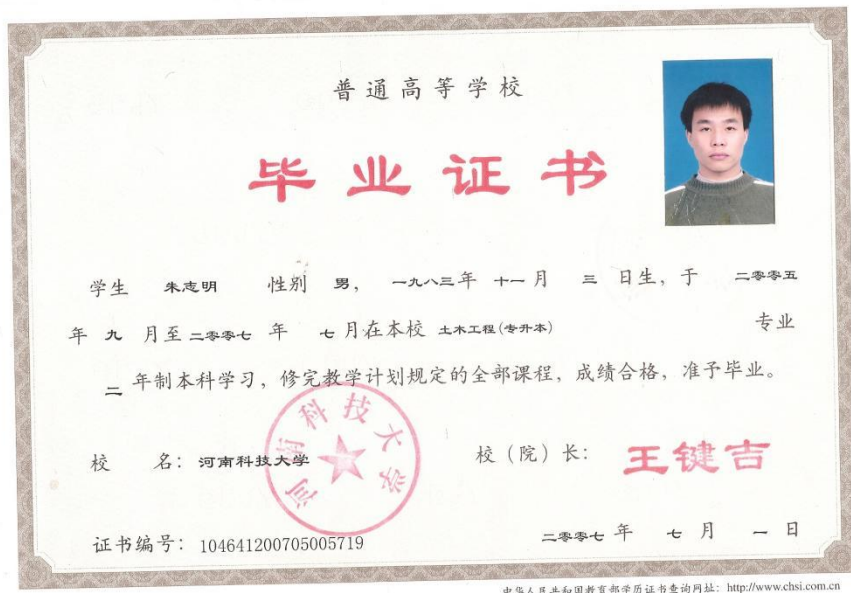 普通高等学校
毕业证书
学生 朱志明 性别 男， 一九八三年 十一月 三 日生，于 二零零五
年 九 月至 二零零七 年 七月在本校 土木工程(专升本) 专业
二 年制本科学习，修完教学计划规定的全部课程，成绩合格，准予毕业。
校 名：河南科技大学 校（院）长：王键吉
河南科技大学
证书编号：104641200705005719 二零零七 年 七 月 一 日
中华人民共和国教育部学历证书查询网址：http://www.chsi.com.cn